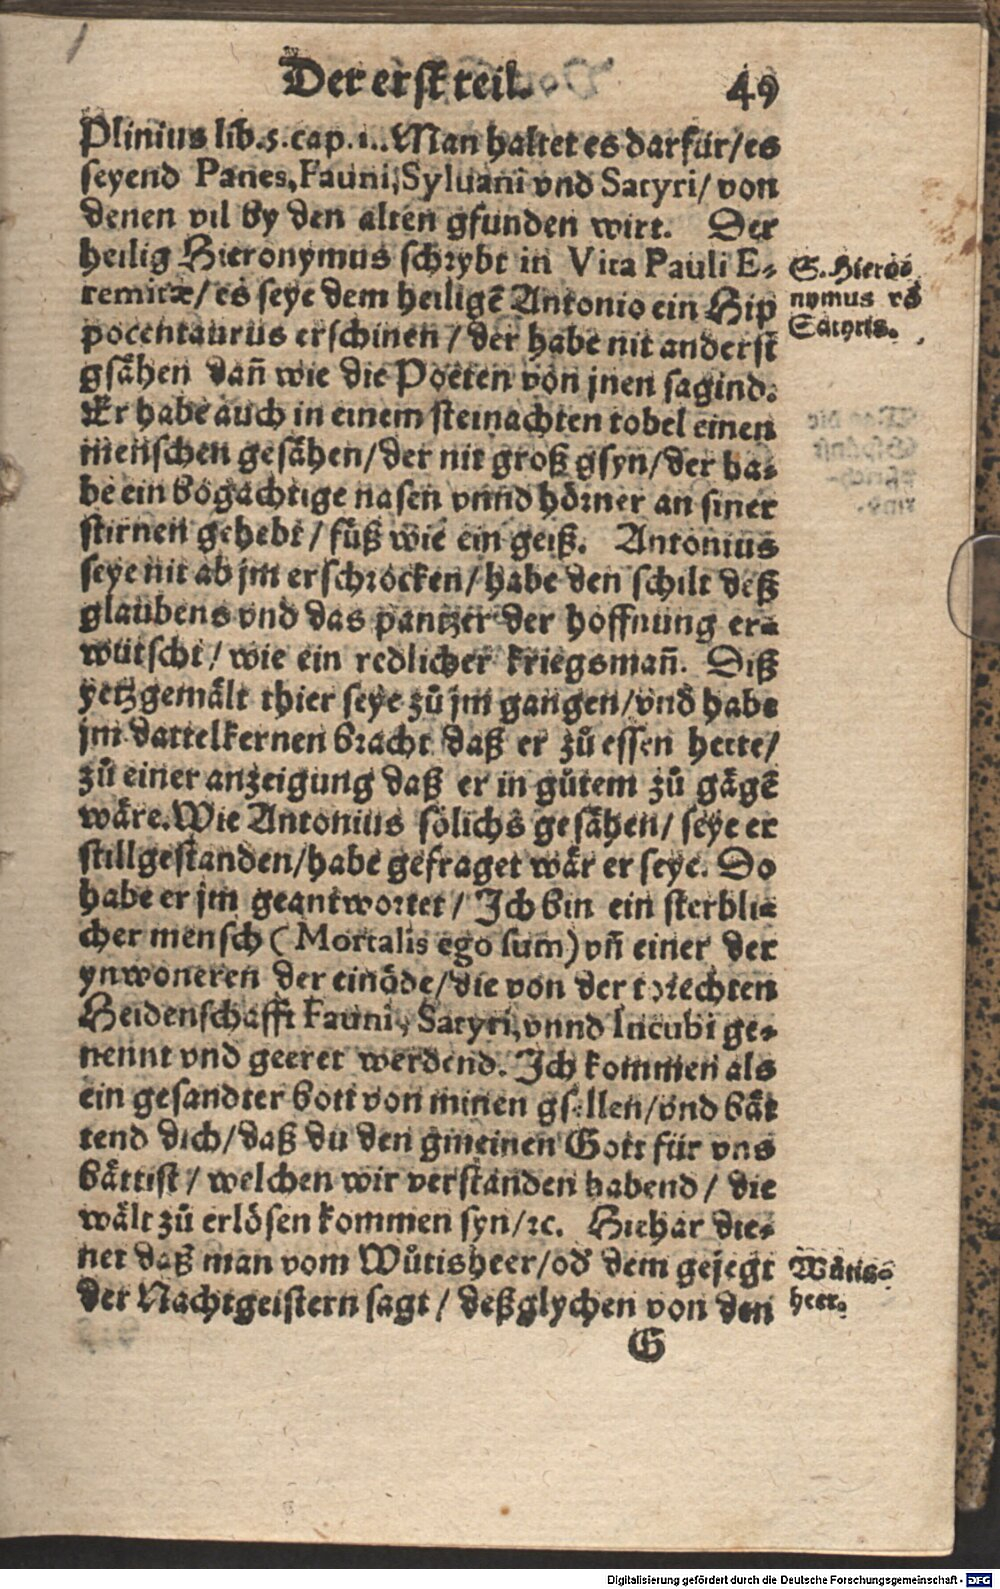 Der erst teil.
49
Plinius lib. 5. cap. 1.. Man haltet es darfür/es
seyend Panes, Fauni, Syluani vnd Satyri/ von
denen vil by den alten gfunden wirt. Der
heilig Hieronymus schrybt in Vita Pauli E-
remitæ/ es seye dem heiligẽ Antonio ein Hip
pocentaurus erschinen/ der habe nit anderst
gsåhen dañ wie die Poeten von jnen sagind.
Er habe auch in einem steinachten tobel einen
menschen gesåhen/der nit groß gsyn/der ha-
be ein bogachtige nasen vnnd hörner an siner
stirnen gehebt/ füß wie ein geiß. Antonius
seye nit ab jm erschrocken/habe den schilt deß
glaubens vnd das pantzer der hoffnung er-
wütscht/ wie ein redlicher kriegsmañ. Diß
yetzgemålt thier seye zů jm gangen/vnd habe
jm dattelkernen bracht daß er zů essen hette/
zů einer anzeigung daß er in gůtem zů gågẽ
wåre. Wie Antonius sölichs gesåhen/ seye er
stillgestanden/habe gefraget wår er seye. Do
habe er jm geantwortet/ Ich bin ein sterbli-
cher mensch (Mortalis ego sum) vñ einer der
ynwoneren der einöde/die von der torechten
Heidenschafft Fauni, Satyri, vnnd Incubi ge-
nennt vnd geeret werdend. Ich kommen als
ein gesandter bott von minen gsellen/vnd båt
tend dich/daß du den gmeinen Gott für vns
båttist/ welchen wir verstanden habend/ die
wålt zů erlösen kommen syn/ꝛc. Hiehar die-
net daß man vom Wůtisheer/od̕ dem gejegt
der Nachtgeistern sagt/ deßglychen von den
G
S. Hiero-
nymus võ
Satyris.
Wůtis-
heer.
Digitalisierung gefördert durch die Deutsche Forschungsgemeinschaft - DFG